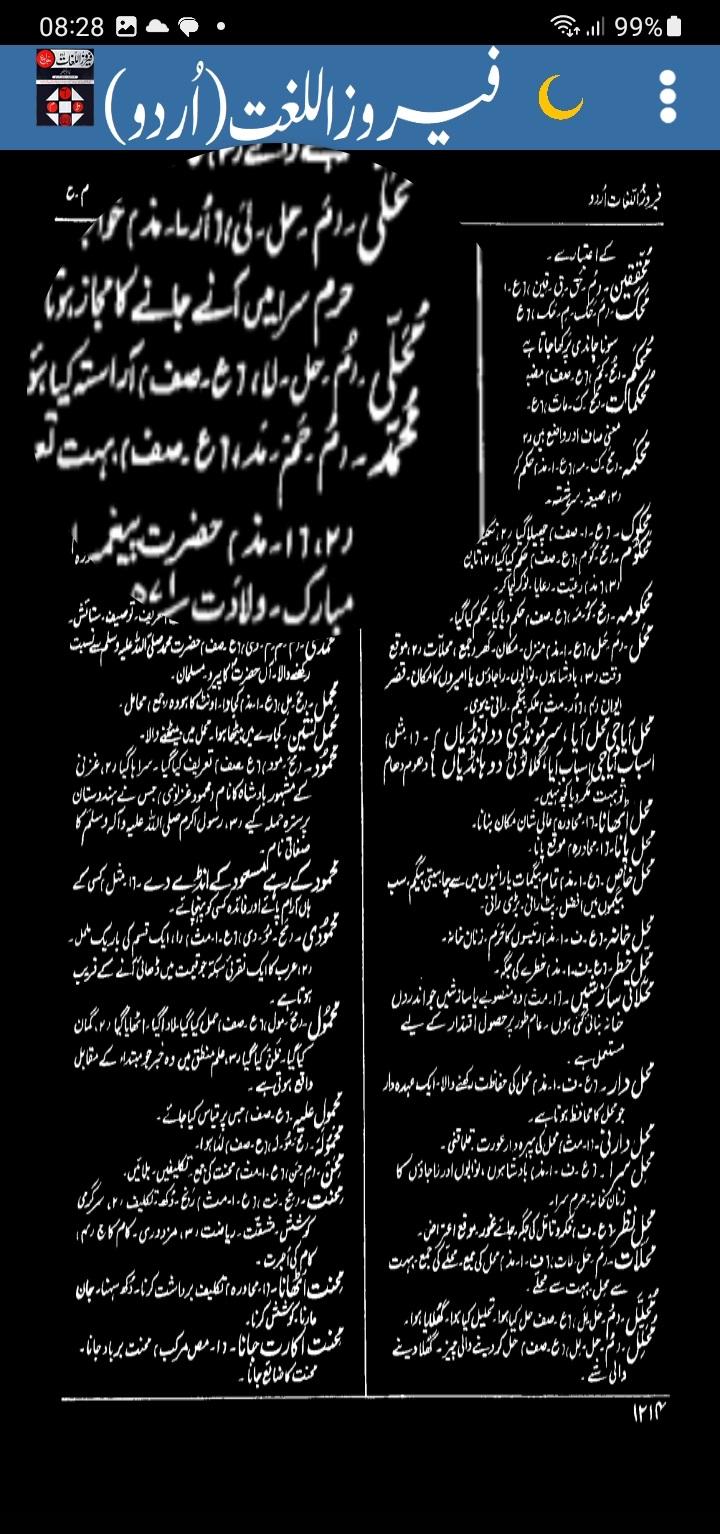 08:28
99%
فیروز اللغت (اُردو)
فیروز اللّغات اُردو
م۔ح
کے اعتبار سے۔
سونا چاندی پرکھا جاتا ہے
معنی صاف اور واضع ہیں (۲
(۲) صیغہ۔ سررشتہ۔
محکوک۔ (ع۔ا۔صف) چھیلا گیا (۲)
محکوم۔ (مح۔کوم) (ع۔صف) حکم کیا گیا (۲) تابع
(۳) (مذ) رعیت۔ رعایا۔ نوکر چاکر۔
محکومہ۔ (مح۔کو۔مہ) (ع۔صف) حکم دیا گیا۔ حکم کیا گیا۔
محل۔ (م۔حل) (ع۔ا۔مذ) منزل۔ مکان۔ گھر (جمع) محلّات (۲) موقع
وقت (۳) بادشاہوں، نوابوں، راجاؤں یا امیروں کا مکان۔ قصر
ایوان (۴) (اُر۔مث) ملکہ۔ بیگم۔ رانی۔ بیوی۔
محل اٹھانا۔ (ا۔محاورہ) عالی شان مکان بنانا۔
محل پانا۔ (ا۔محاورہ) موقع پانا۔
محل خاص۔ (ع۔ا۔مذ) تمام بیگمات یا رانیوں میں سے چاہیتی بیگم۔ سب
بیگموں میں افضل۔ پٹ رانی۔ بڑی رانی۔
محل خانہ۔ (ع۔ف۔ا۔مذ) رئیسوں کا حرم۔ زنان خانہ۔
محل خطر۔ (ع۔ف۔ا۔مذ) خطرے کی جگہ۔
محلّاتی سازشیں۔ (ا۔مث) وہ منصوبے یا سازشیں جو اندرون
خانہ بنائی گئی ہوں۔ عام طور پر حصول اقتدار کے لیے
مستعمل ہے۔
محل دار۔ (ع۔ف۔ا۔مذ) محل کی حفاظت رکھنے والا۔ ایک عہدہ دار
جو محل کا محافظ ہوتا ہے۔
محل دارنی۔ (ا۔مث) محل کی پہرہ دار عورت۔ قلماقنی۔
محل سرا۔ (ع۔ف۔ا۔مذ) بادشاہوں، نوابوں اور راجاؤں کا
زنان خانہ۔ حرم سرا۔
محل نظر۔ (ع۔ف) فکر و تامل کی جگہ۔ جائے غور۔ موقع اعتراض۔
محلّات۔ (م۔حل۔لات) (ف۔ا۔مذ) محل کی جمع۔ محلے کی جمع۔ بہت
سے محل۔ بہت سے محلے۔
محلَّل۔ (مُ۔حل۔لَل) (ع۔صف) حل کیا ہوا۔ تحلیل کیا ہوا۔ گھلایا ہوا۔
محلِّل۔ (مُ۔حل۔لِل) (ع۔صف) حل کر دینے والی چیز۔ گھلا دینے
والی شے۔
مُحلّی۔ (مُ۔حل۔لی) (اُر۔ا۔مذ)
حرم سرا میں آنے جانے کا مجاز ہوتا
مُحلّٰی۔ (مُ۔حل۔لا) (ع۔صف) آراستہ کیا ہو
مُحمّد۔ (مُ۔حَم۔مَد) (ع۔صف) بہت تع
(۲) (ا۔مذ) حضرت پیغمبر
مبارک۔ ولادت ۵۷۱
محمدی۔ حضرت محمد صلی اللہ علیہ وسلم سے نسبت
رکھنے والا۔ آں حضرت کا پیرو۔ مسلمان۔
محمل۔ (مح۔مل) (ع۔ا۔مذ) کجاوا۔ اونٹ کا ہودہ (جمع) محامل۔
محمل نشین۔ کجاوے میں بیٹھا ہوا۔ محمل میں بیٹھنے والا۔
محمود۔ (مح۔مود) (ع۔صف) تعریف کیا گیا۔ سراہا گیا (۲) غزنی
کے مشہور بادشاہ کا نام (محمود غزنوی) جس نے ہندوستان
پر سترہ حملہ کیے (۳) رسول اکرم صلی اللہ علیہ وآلہ وسلم کا
صفاتی نام۔
محمود کے رہے مسعود کے انڈے دے۔ (ا۔مثل) کسی کے
ہاں آرام پائے اور فائدہ کسی کو پہنچائے۔
محمودی۔ (مح۔مو۔دی) (ع۔ا۔مث) (ا) ایک قسم کی باریک ململ۔
(۲) عرب کا ایک نقرئی سکہ جو قیمت میں ڈھائی آنے کے قریب
ہوتا ہے۔
محمول۔ (مح۔مول) (ع۔صف) حمل کیا گیا۔ لادا گیا۔ اٹھایا گیا (۲) گمان
کیا گیا۔ ظن کیا گیا (۳) علم منطق میں وہ خبر جو مبتداء کے مقابل
واقع ہوتی ہے۔
محمول علیہ۔ (ع۔صف) جس پر قیاس کیا جائے۔
محمولہ۔ (مح۔مو۔لہ) (ع۔صف) لدا ہوا۔
محن۔ (م۔حن) (ع۔ا۔مث) محنت کی جمع۔ تکلیفیں۔ بلائیں۔
محنت۔ (مح۔نت) (ع۔ا۔مث) رنج۔ دُکھ۔ تکلیف (۲) سرگرمی
کوشش۔ مشقت۔ ریاضت (۳) مزدوری۔ کام کاج (۴)
کام کی اُجرت۔
محنت اٹھانا۔ (ا۔محاورہ) تکلیف برداشت کرنا۔ دکھ سہنا۔ جان
مارنا۔ کوشش کرنا۔
محنت اکارت جانا۔ (ا۔مص مرکب) محنت برباد جانا۔
محنت کا ضائع جانا۔
۱۲۱۴